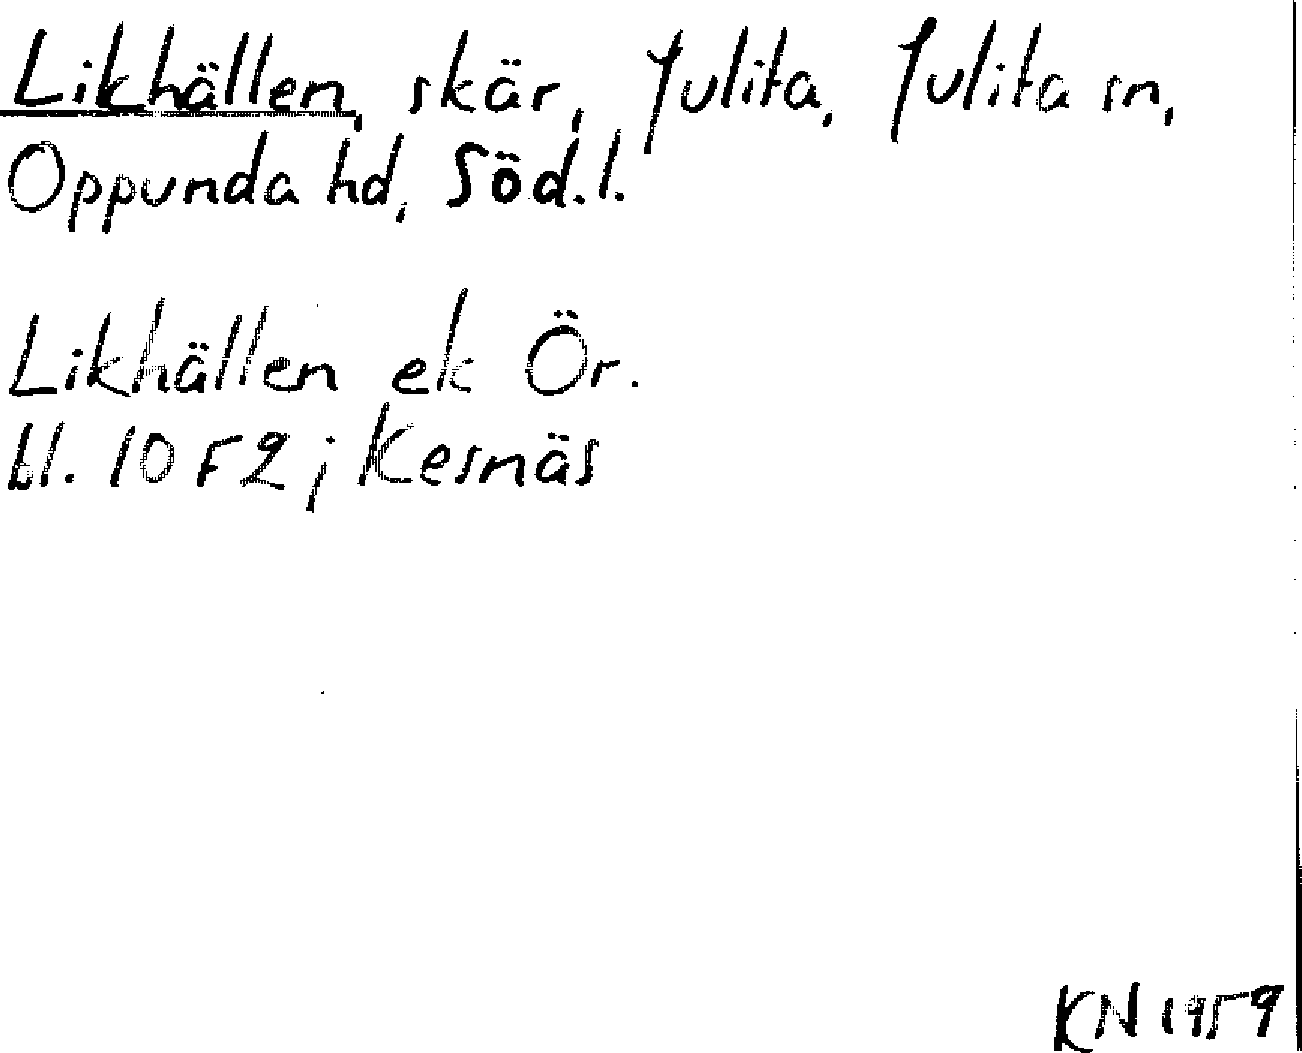 Likhällen, skär, Julita, Julita sn,
Oppunda hd, Söd. l.
Likhällen ek Ör.
bl. 10 F2; Kesnäs
KN 1959